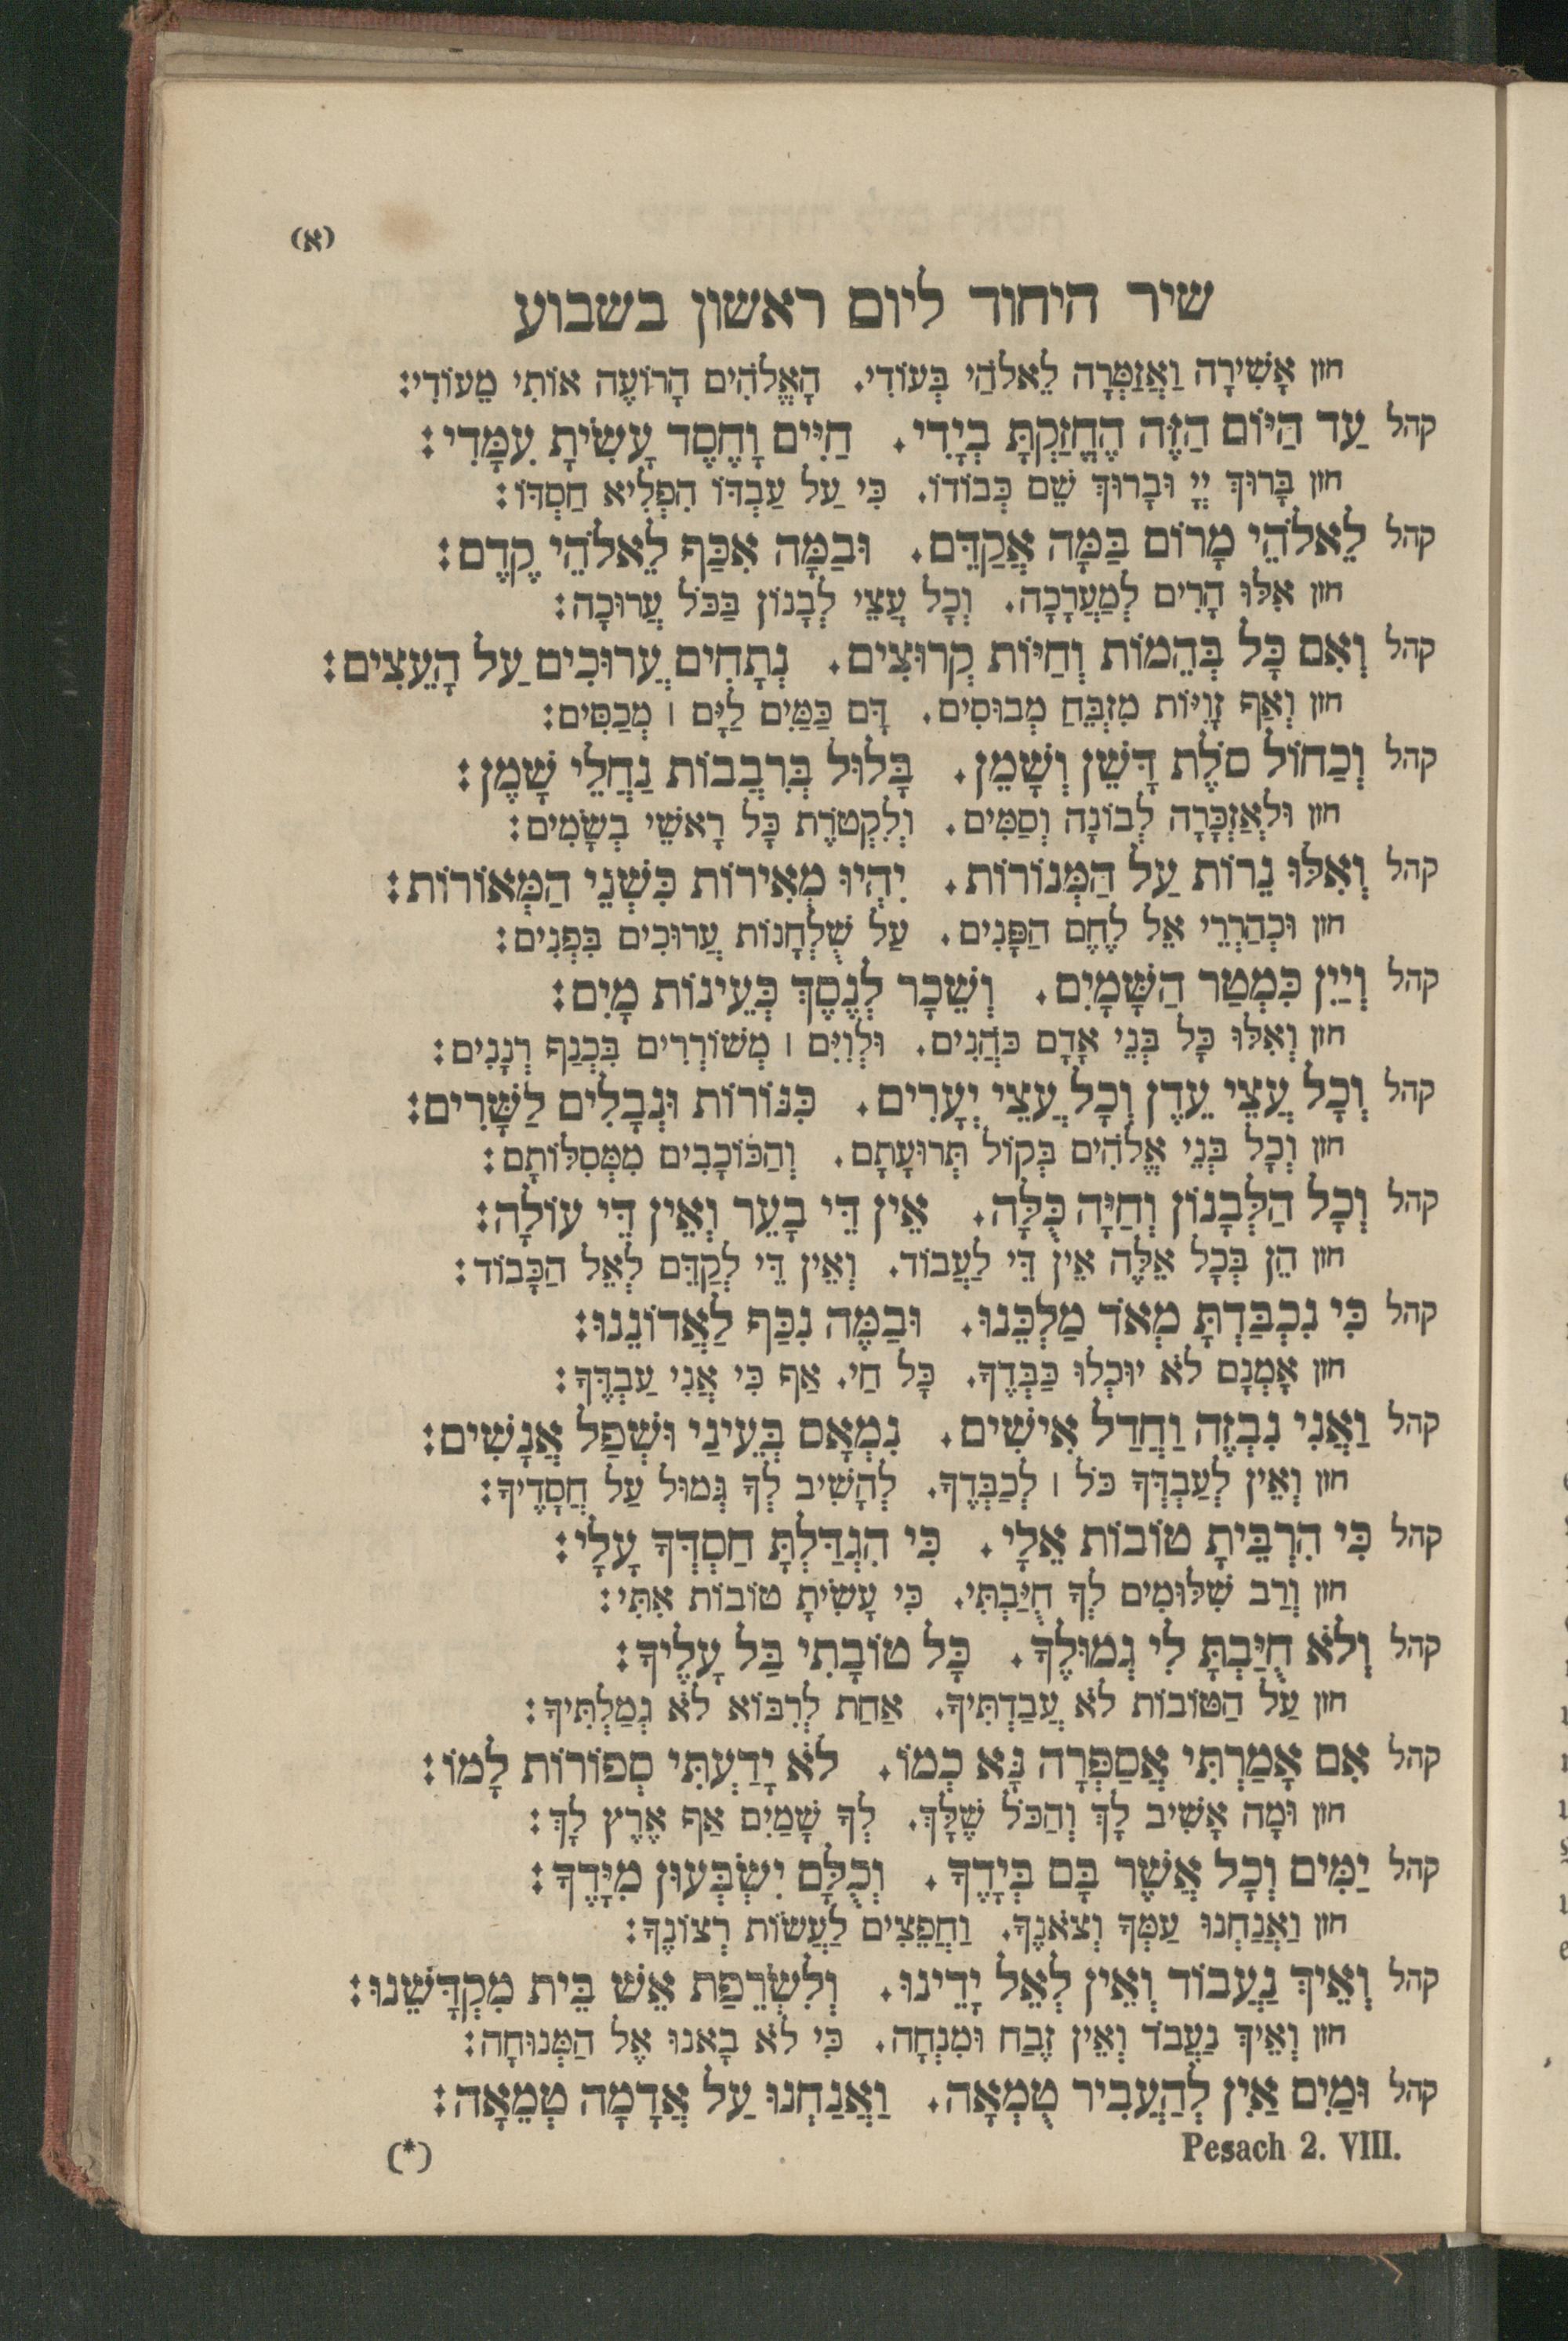 (א)
שיר היחוד ליום ראשון בשבוע
חזן אָשִׁירָה וַאֲזַמְּרָה לֵאלֹהַי בְּעוֹדִי. הָאֱלֹהִים הָרוֹעֶה אוֹתִי מֵעוֹדִי:
קהל עַד הַיּוֹם הַזֶּה הֶחֱזַקְתָּ בְיָדִי. חַיִּים וָחֶסֶד עָשִׂיתָ עִמָּדִי:
חזן בָּרוּךְ יְיָ וּבָרוּךְ שֵׁם כְּבוֹדוֹ. כִּי עַל עַבְדּוֹ הִפְלִיא חַסְדּוֹ:
קהל לֵאלֹהֵי מָרוֹם בַּמָּה אֲקַדֵּם. וּבַמָּה אִכַּף לֵאלֹהֵי קֶדֶם:
חזן אִלּוּ הָרִים לְמַעֲרָכָה. וְכָל עֲצֵי לְבָנוֹן בַּכֹּל עֲרוּכָה:
קהל וְאִם כָּל בְּהֵמוֹת וְחַיּוֹת קְרוּצִים. נְתָחִים עֲרוּכִים עַל הָעֵצִים:
חזן וְאַף זָוִיּוֹת מִזְבֵּחַ מְבוּסִים. דָּם כַּמַּיִם לַיָּם ׀ מְכַסִּים:
קהל וְכַחוֹל סֹלֶת דָּשֵׁן וְשָׁמֵן. בָּלוּל בְּרִבֲבוֹת נַחֲלֵי שָׁמֶן:
חזן וּלְאַזְכָּרָה לְבוֹנָה וְסַמִּים. וְלִקְטוֹרֶת כָּל רָאשֵׁי בְשָׂמִים:
קהל וְאִלּוּ נֵרוֹת עַל הַמְּנוֹרוֹת. יִהְיוּ מְאִירוֹת כִּשְׁנֵי הַמְּאוֹרוֹת:
חזן וּכְהַרְרֵי אֵל לֶחֶם הַפָּנִים. עַל שֻׁלְחָנוֹת עֲרוּכִים בִּפְנִים:
קהל וְיַיִן כִּמְטַר הַשָּׁמָיִם. וְשֵׁכָר לְנֶסֶךְ כְּעֵינוֹת מָיִם:
חזן וְאִלּוּ כָּל בְּנֵי אָדָם כֹּהֲנִים. וּלְוִיִּם ׀ מְשׁוֹרְרִים בִּכְנַף רְנָנִים:
קהל וְכָל עֲצֵי עֵדֶן וְכָל עֲצֵי יְעָרִים. כִּנּוֹרוֹת וּנְבָלִים לַשָּׁרִים:
חזן וְכָל בְּנֵי אֱלֹהִים בְּקוֹל תְּרוּעָתָם. וְהַכּוֹכָבִים מִמְּסִלּוֹתָם:
קהל וְכָל הַלְּבָנוֹן וְחַיָּה כֻּלָּהּ. אֵין דֵּי בָעֵר וְאֵין דֵּי עוֹלָה:
חזן הֵן בְּכָל אֵלֶּה אֵין דֵּי לַעֲבוֹד. וְאֵין דֵּי לְקַדֵּם לְאֵל הַכָּבוֹד:
קהל כִּי נִכְבַּדְתָּ מְאֹד מַלְכֵּנוּ. וּבַמֶּה נִכַּף לַאֲדוֹנֵנוּ:
חזן אָמְנָם לֹא יוּכְלוּ כַּבְּדֶךָ. כָּל חַי. אַף כִּי אֲנִי עַבְדֶּךָ:
קהל וַאֲנִי נִבְזֶה וַחֲדַל אִישִׁים. נִמְאָס בְּעֵינַי וּשְׁפַל אֲנָשִׁים:
חזן וְאֵין לְעַבְדְּךָ כֹּל ׀ לְכַבְּדֶךָ. לְהָשִׁיב לְךָ גְּמוּל עַל חֲסָדֶיךָ:
קהל כִּי הִרְבֵּיתָ טוֹבוֹת אֵלָי. כִּי הִגְדַּלְתָּ חַסְדְּךָ עָלָי:
חזן וְרַב שִׁלּוּמִים לְךָ חֻיַּבְתִּי. כִּי עָשִׂיתָ טוֹבוֹת אִתִּי:
קהל וְלֹא חֻיַּבְתָּ לִי גְמוּלֶךָ. כָּל טוֹבָתִי בַּל עָלֶיךָ:
חזן עַל הַטּוֹבוֹת לֹא עֲבַדְתִּיךָ. אַחַת לְרִבּוֹא לֹא גְמַלְתִּיךָ:
קהל אִם אָמַרְתִּי אֲסַפְּרָה נָּא כְמוֹ. לֹא יָדַעְתִּי סְפוֹרוֹת לָמוֹ:
חזן וּמָה אָשִׁיב לָךְ וְהַכֹּל שֶׁלָּךְ. לְךָ שָׁמַיִם אַף אֶרֶץ לָךְ:
קהל יַמִּים וְכָל אֲשֶׁר בָּם בְּיָדֶךָ. וְכֻלָּם יִשְׂבְּעוּן מִיָּדֶךָ:
חזן וַאֲנַחְנוּ עַמְּךָ וְצֹאנֶךָ. וַחֲפֵצִים לַעֲשׂוֹת רְצוֹנֶךָ:
קהל וְאֵיךְ נַעֲבוֹד וְאֵין לְאֵל יָדֵינוּ. וְלִשְׂרֵפַת אֵשׁ בֵּית מִקְדָּשֵׁנוּ:
חזן וְאֵיךְ נַעֲבֹד וְאֵין זֶבַח וּמִנְחָה. כִּי לֹא בָאנוּ אֶל הַמְּנוּחָה:
קהל וּמַיִם אַיִן לְהַעֲבִיר טֻמְאָה. וַאֲנַחְנוּ עַל אֲדָמָה טְמֵאָה:
Pesach 2. VIII. (*)